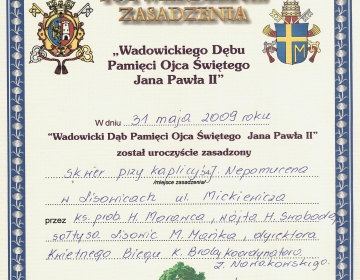 ZASADZENIA
„Wadowickiego Dębu
Pamięci Ojca Świętego
Jana Pawła II”
W dniu 31 maja 2009 roku
“Wadowicki Dąb Pamięci Ojca Świętego Jana Pawła II”
został uroczyście zasadzony
skwer przy kaplicy św. Nepomucena
/miejsce zasadzenia/
w Lisowicach ul. Mickiewicza
przez ks. prob. H. wójta H. Swobodę,
sołtysa M. Mańka, dyrektora
Kwietnego Biegu K. koordynatora
Z. Nowakowskiego.